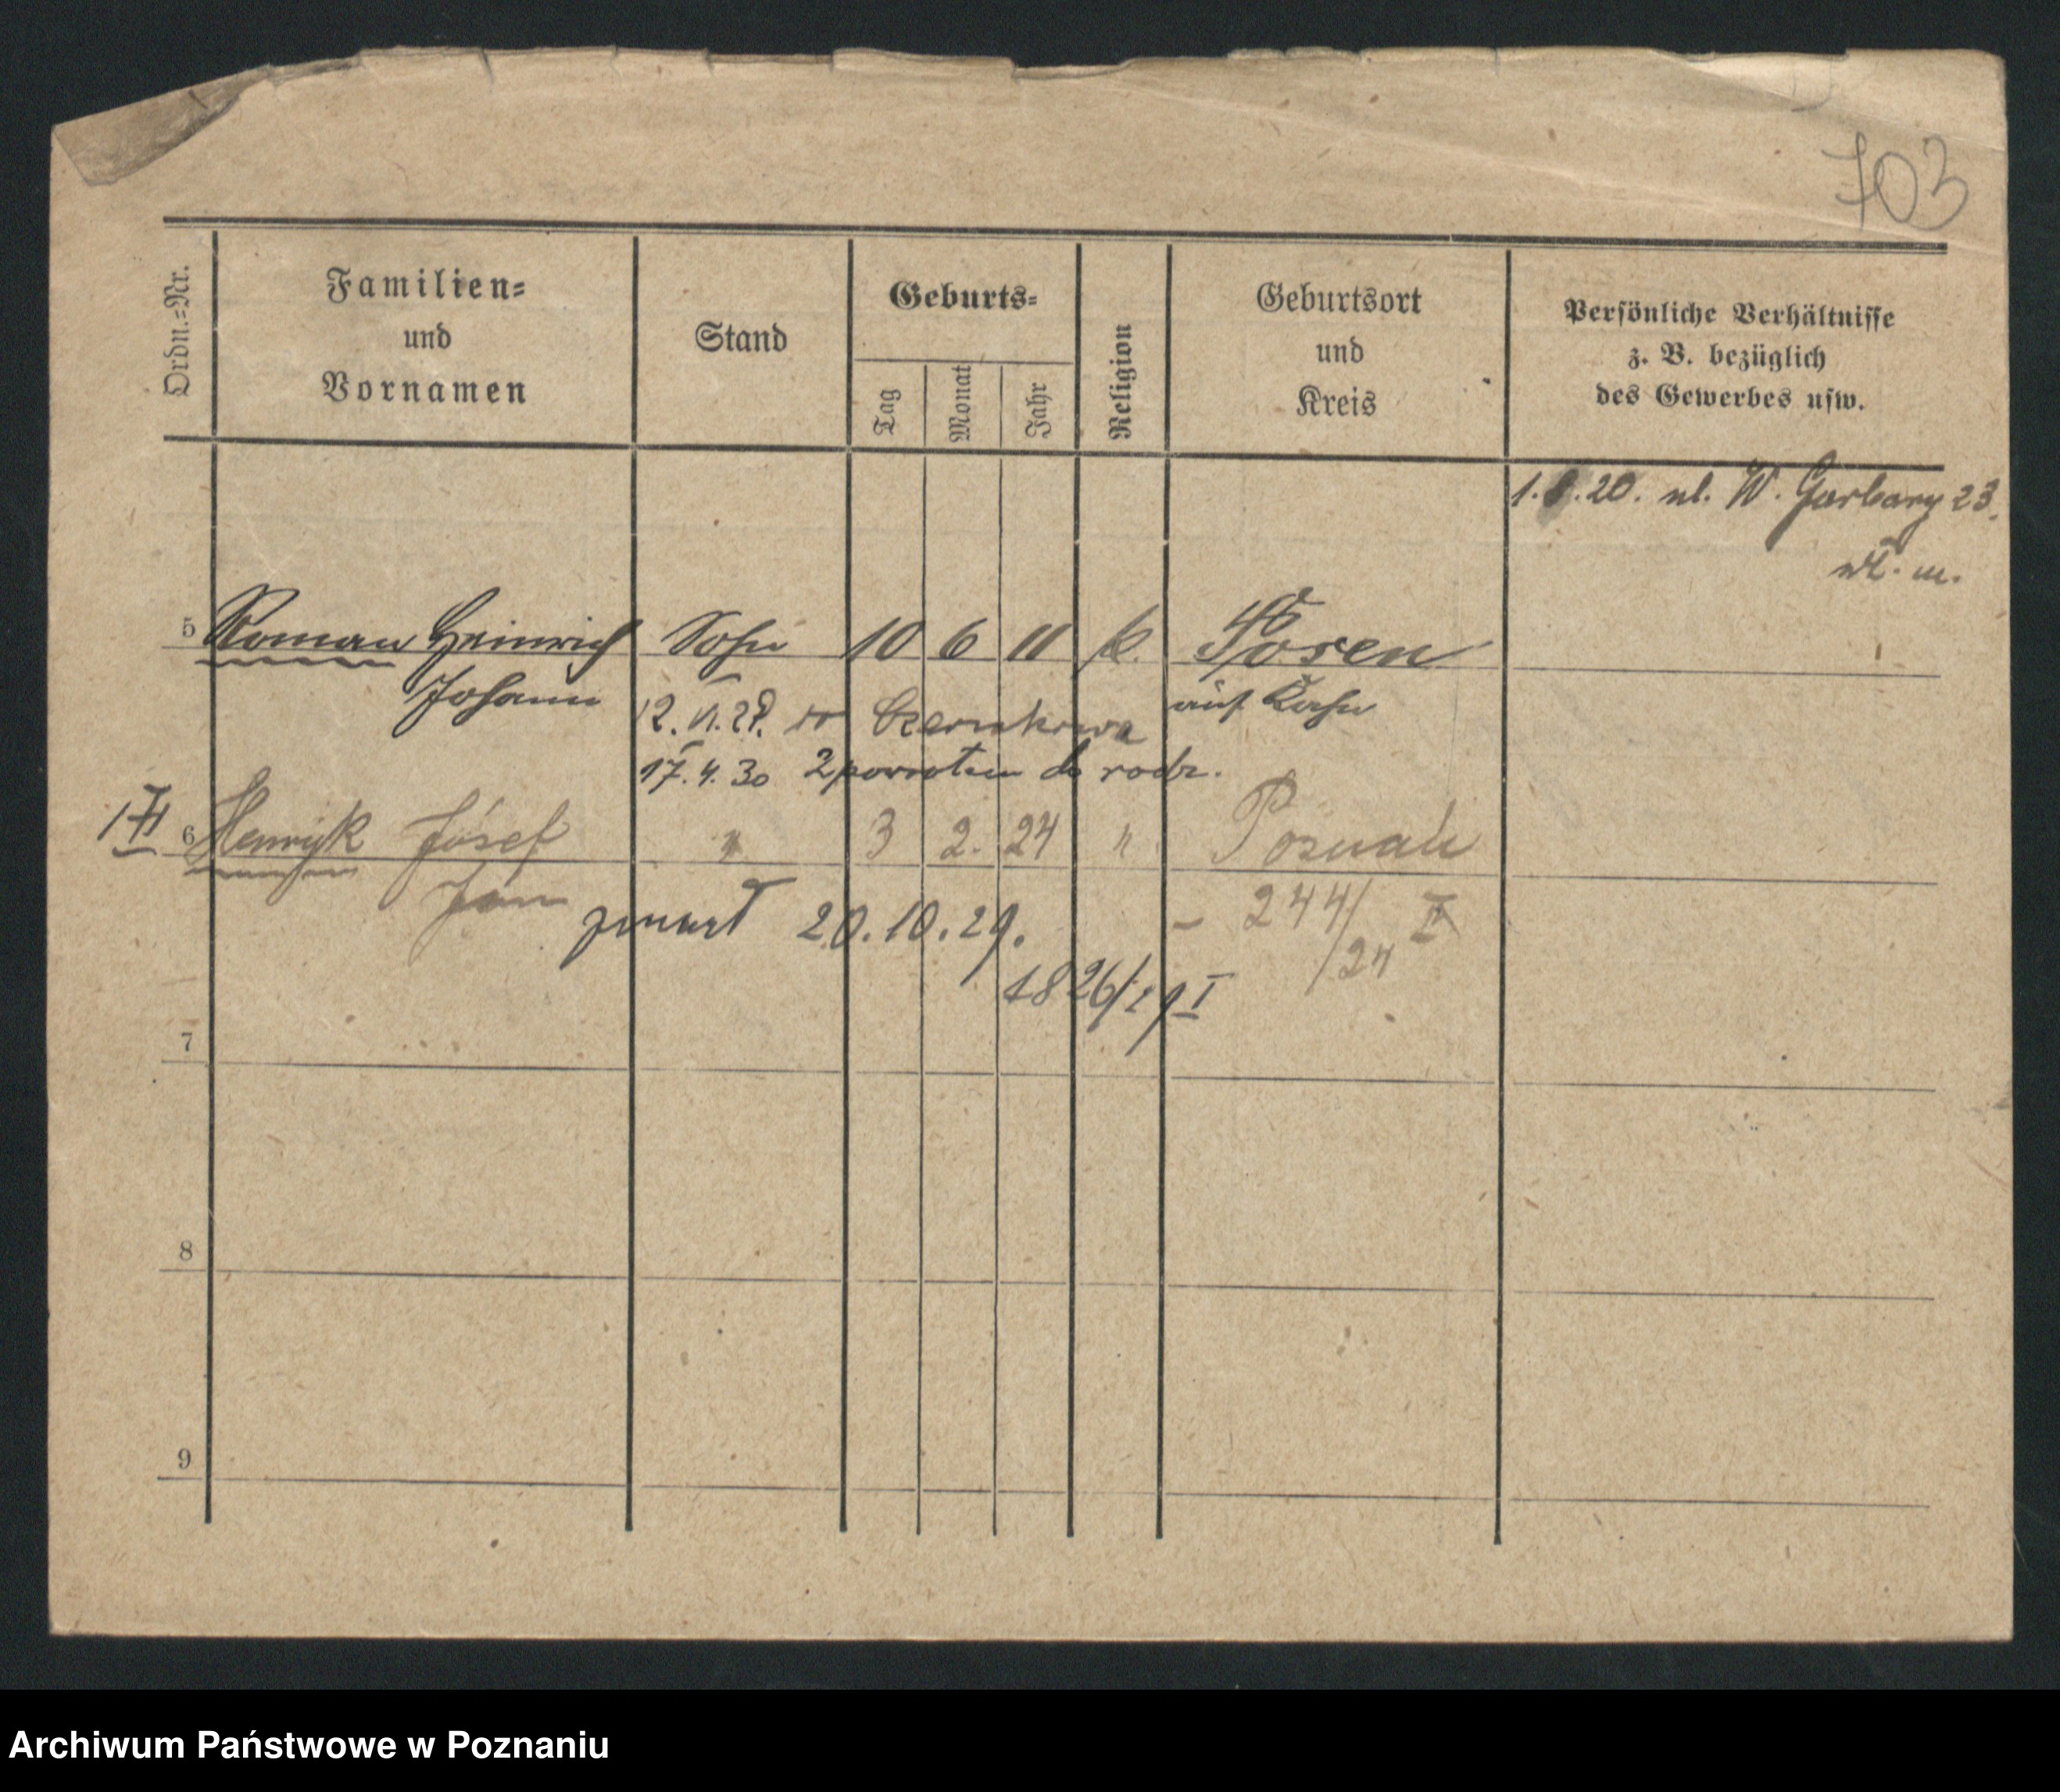 703
Ordn.-Nr.
Familien-
und
Vornamen
Stand
Geburts-
Tag
Monat
Jahr
Religion
Geburtsort
und
Kreis
Persönliche Verhältnisse
z. B. bezüglich
des Gewerbes usw.
1. 8. 20. ul. W. Garbary 23.
wł. m.
5 Roman Heinrich Sohn 10 6 11 k. Posen
Johann auf Kahn
12. VI. 29. w
17. 4. 30 z powrotem do rodz.
6 Henryk Józef " 3 2. 24 " Poznań
Jan - 244/24 II
zmarł 20. 10. 29.
1826/29 I
7
8
9
Archiwum Państwowe w Poznaniu